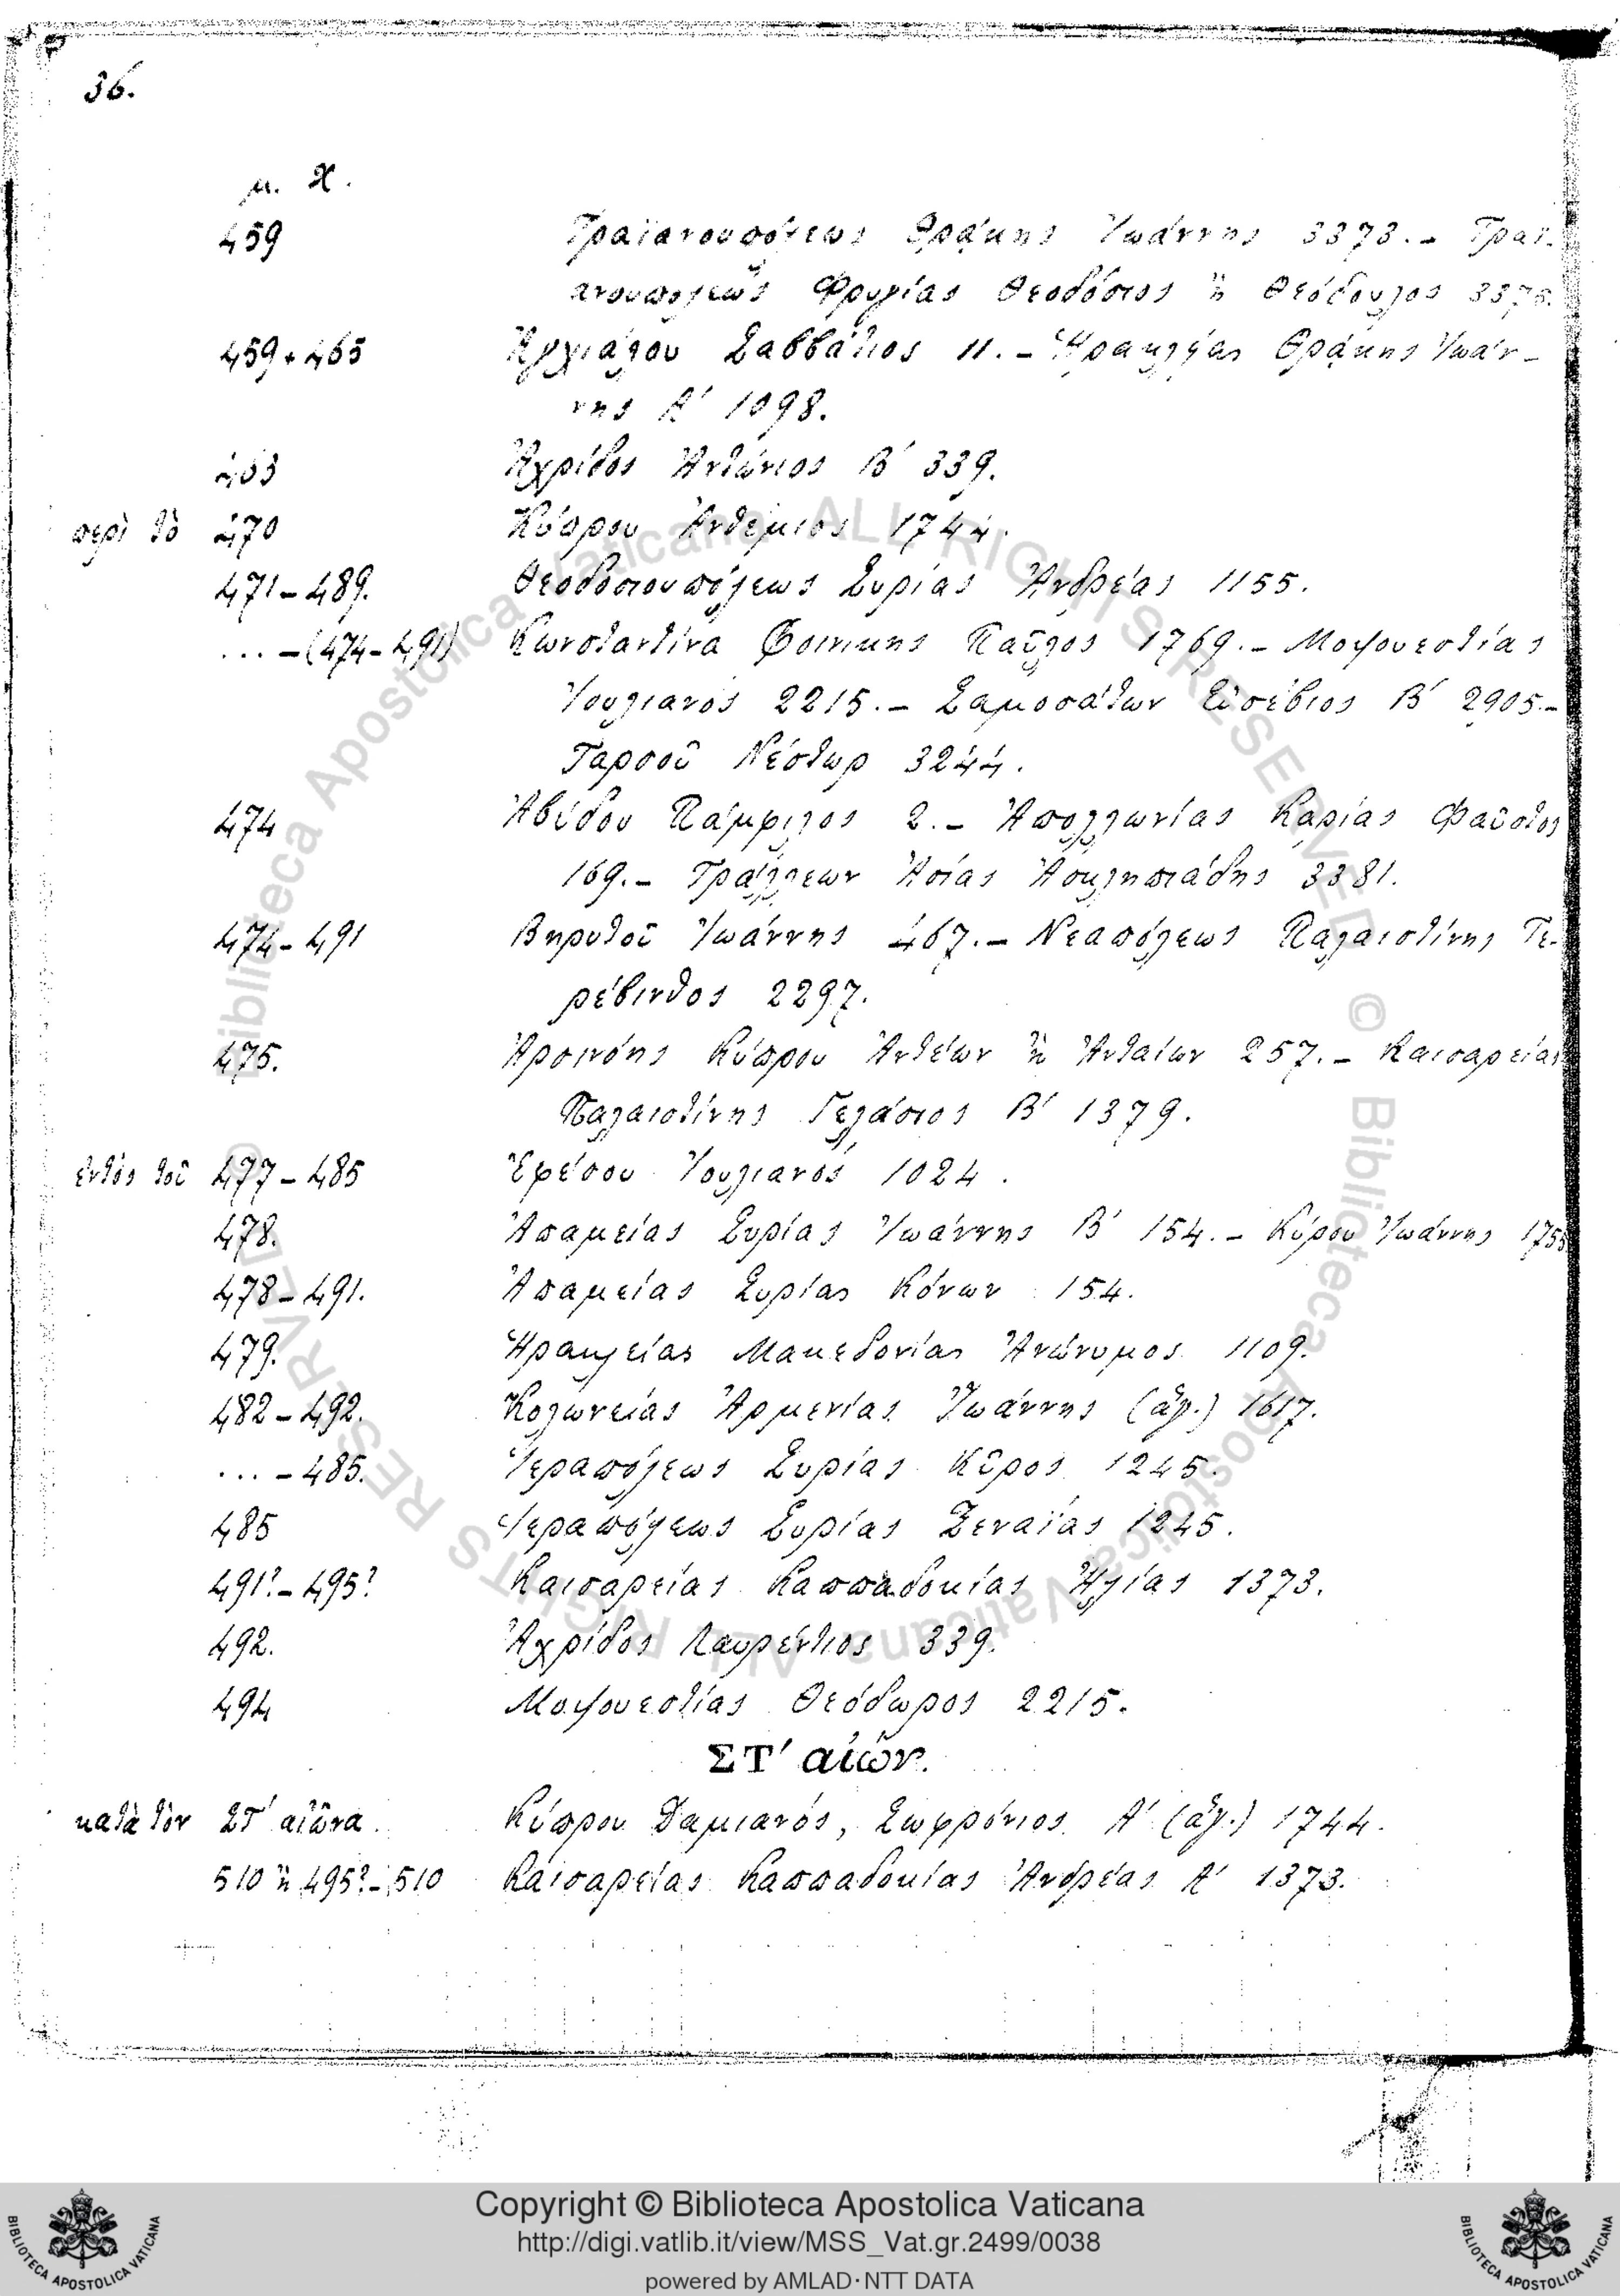 36.
μ. Χ.
459 Τραϊανουπόλεως Θράκης Ἰωάννης 3373. – Τραϊ-
ανουπόλεως Φρυγίας Θεοδόσιος ἢ Θεόδουλος
459 + 465 Ἀγχιάλου Σαββάτιος 11. – Ἡρακλείας Θράκης Ἰωάν-
νης Α΄ 1098.
463 Ἀχρίδος Ἀντώνιος Β΄ 339.
περὶ τὸ 470 Κύπρου Ἀνθέμιος 1744.
471 – 489. Θεοδοσιουπόλεως Συρίας Ἀνδρέας 1155.
... – (474 – 491) Κωνσταντίνα Φοινίκης Παῦλος 1769. – Μοψουεστίας
Ἰουλιανὸς 2215. – Σαμοσάτων Εὐσέβιος Β΄ 2905. –
Ταρσοῦ Νέστωρ 3244.
474 Ἀβύδου Πάμφιλος 2. – Ἀπολλωνίας Καρίας Φαῦστος
169. – Τράλλεων Ἀσίας Ἀσκληπιάδης 3381.
474 – 491 Βηρυτοῦ Ἰωάννης 467. – Νεαπόλεως Παλαιστίνης Τε-
ρέβινθος 2297.
475. Ἀρσινόης Κύπρου Ἀνθέων ἢ Ἀνταίων 257. – Καισαρείας
Παλαιστίνης Γελάσιος Β΄ 1379.
ἐντὸς τοῦ 477 – 485 Ἐφέσου Ἰουλιανὸς 1024.
478. Ἀπαμείας Συρίας Ἰωάννης Β΄ 154. – Κύρου Ἰωάννης 1755
478 – 491. Ἀπαμείας Συρίας Κόνων 154.
479. Ἡρακλείας Μακεδονίας Ἀνώνυμος 1109.
482 – 492. Κολωνείας Ἀρμενίας Ἰωάννης (ἅγ.) 1617.
... – 485. Ἱεραπόλεως Συρίας Κῦρος 1245.
485 Ἱεραπόλεως Συρίας Ξεναΐας 1245.
491? – 495? Καισαρείας Καππαδοκίας Ἠλίας 1373.
492. Ἀχρίδος Λαυρέντιος 339.
494 Μοψουεστίας Θεόδωρος 2215.
ΣΤ΄ αἰών.
κατὰ τὸν ΣΤ΄ αἰῶνα Κύπρου Δαμιανός, Σωφρόνιος Α΄ (ἅγ.) 1744.
510 ἢ 495? – 510 Καισαρείας Καππαδοκίας Ἀνδρέας Α΄ 1373.
© Biblioteca Apostolica Vaticana ALL RIGHTS RESERVED © Biblioteca Apostolica Vaticana ALL RIGHTS RESERVED
Copyright © Biblioteca Apostolica Vaticana
http://digi.vatlib.it/view/MSS_Vat.gr.2499/0038
powered by AMLAD·NTT DATA
BIBLIOTECA APOSTOLICA VATICANA
BIBLIOTECA APOSTOLICA VATICANA